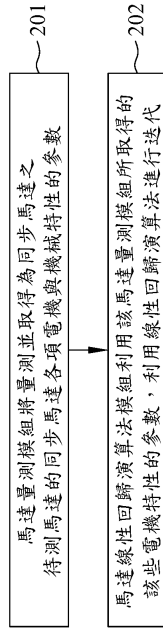 馬達量測模組將量測並取得為同步馬達之
待測馬達的同步馬達各項電機與機械特性的參數
201
馬達線性回歸演算法模組利用該馬達量測模組所取得的
該些電機特性的參數，利用線性回歸演算法進行迭代
202